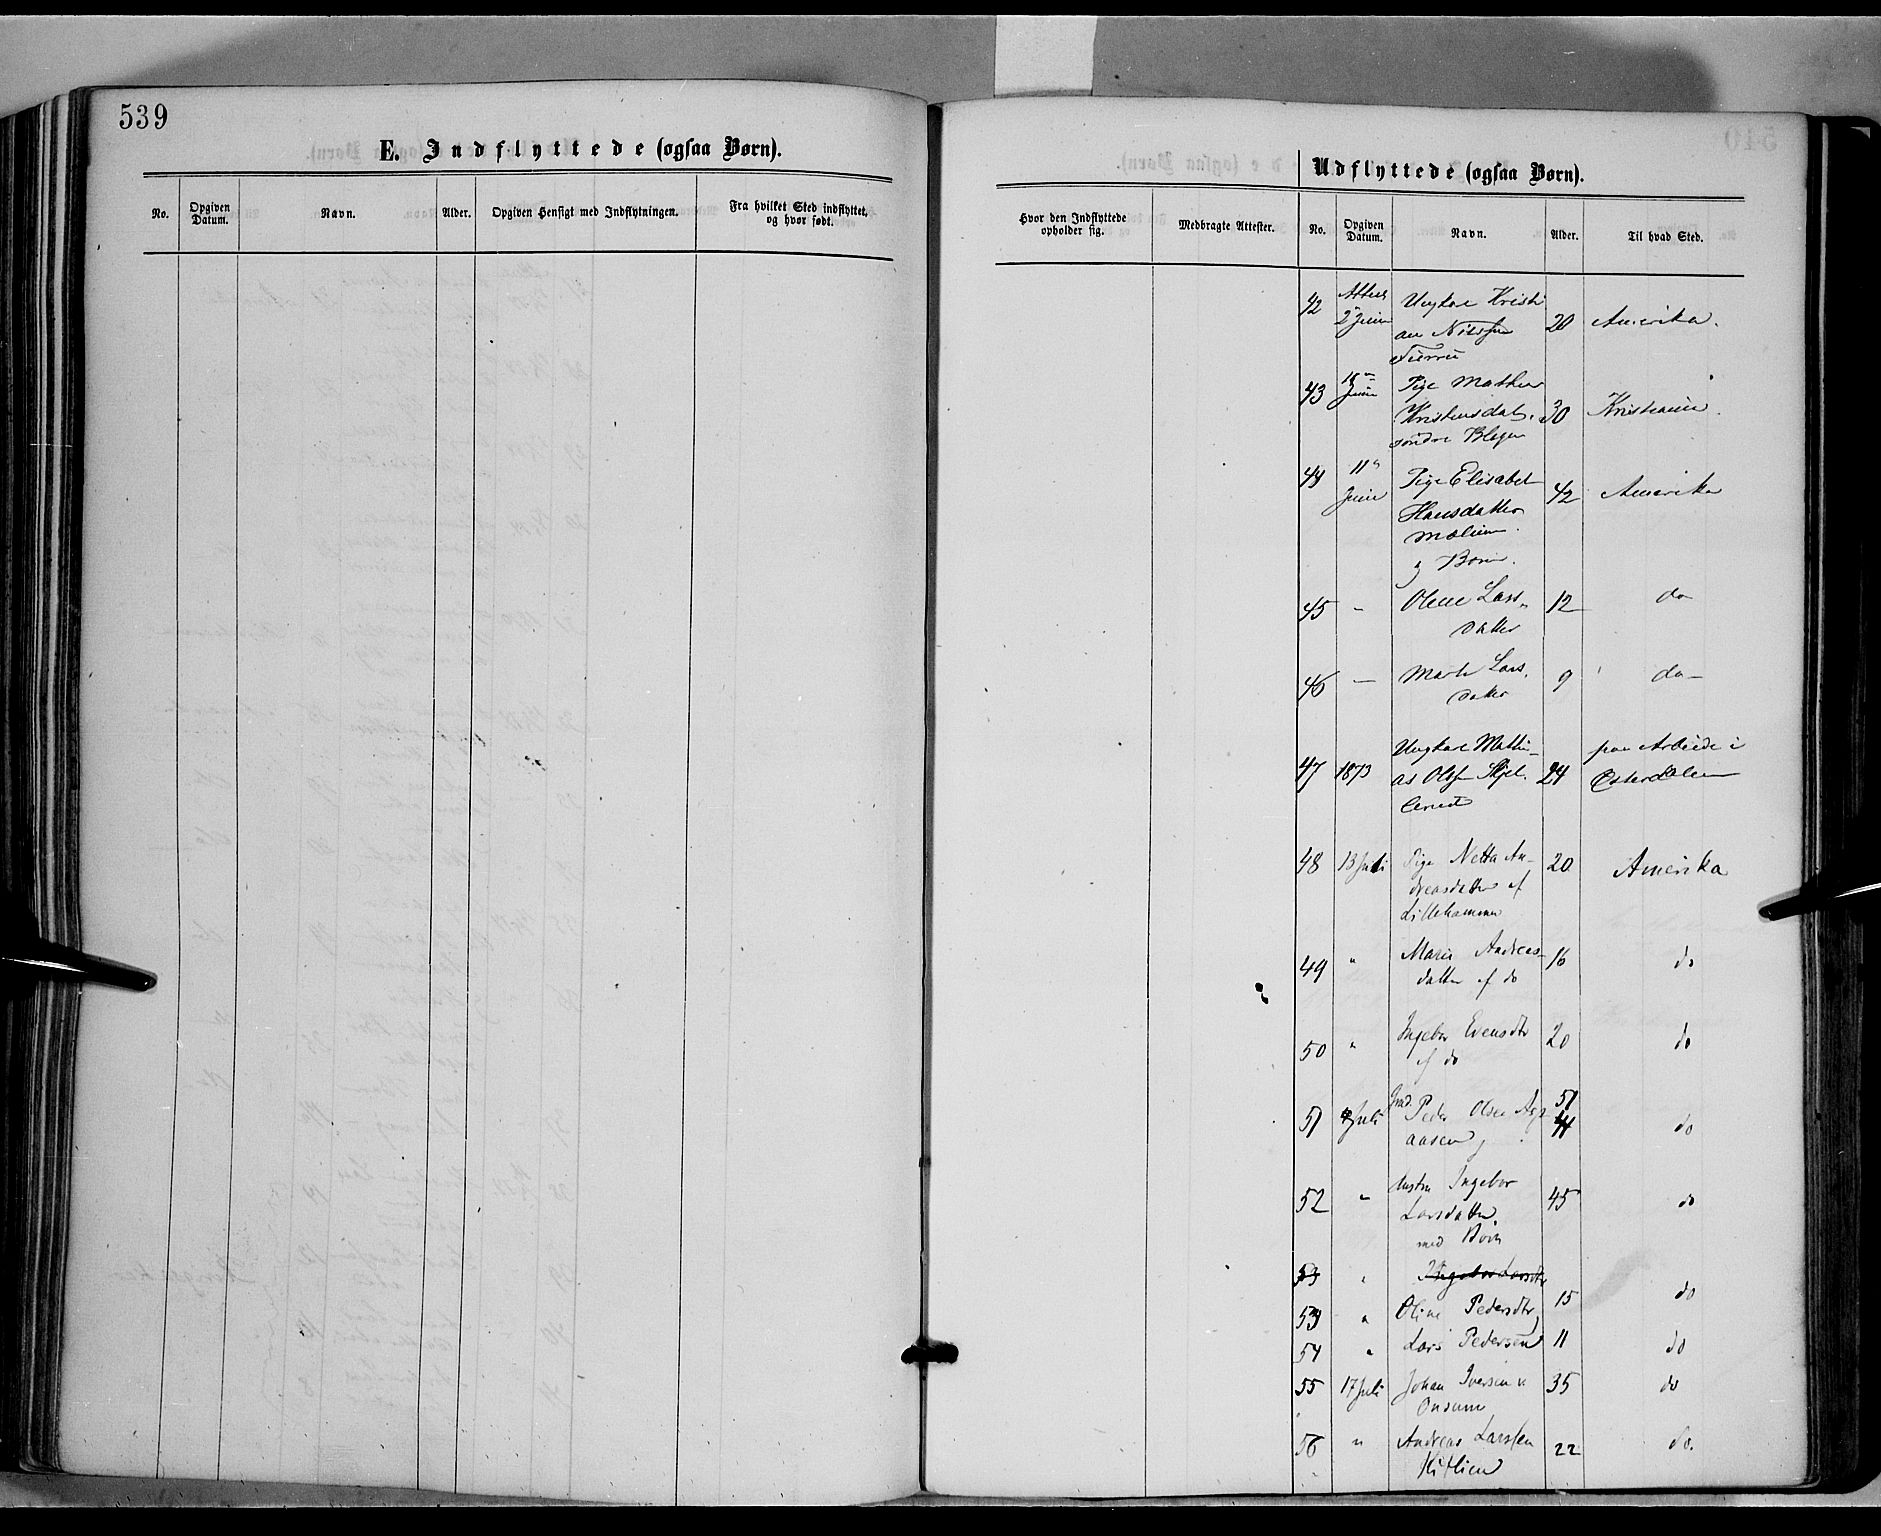 539
E. Indflyttede (ogsaa Børn).
No.
Opgiven Datum.
Navn.
Alder.
Opgiven Hensigt med Indflytningen.
Fra hvilket Sted indflyttet, og hvor født.
Udflyttede (ogsaa Børn).
Hvor den Indflyttede opholder sig.
Medbragte Attester.
No.
Opgiven Datum.
Navn.
Alder.
Til hvad Sted.
42 2 Juni Ungkarl Kristi
an Nilssen 20 Amerika.
43 Juni Pige Mathea
Kristensdat. 30 Kristiania.
søndre
44 11 Juni Pige Elisabet
Hansdatter 42 Amerika
Moliun
g Born.
45 - Olene Lars 12 do
datter
46 - Marte Lars 9 do
datter
Ungkarl Mathi- paa Arbeide i
47 1873 as Olsen 24 Østerdalen
48 13 Juli Pige Netta An- 20 Amerika
dreasdatter af
Lillehammer
49 " Marie Andreas- 16 do
datter af do
50 " Ingebor Evensdtr 20 do
af do
51 Juli Peder Olsen 51 do
aasen
52 " Hustru Ingebor 45 do
Larsdatter
med Born
53 " Ingebor Larsdtr
53 " Oline Pedersdtr 15 do
54 " Lars Pedersen 11 do
55 17 Juli Johan Iversen 35 do
Onsum
56 " Andreas Larssen 22 do.